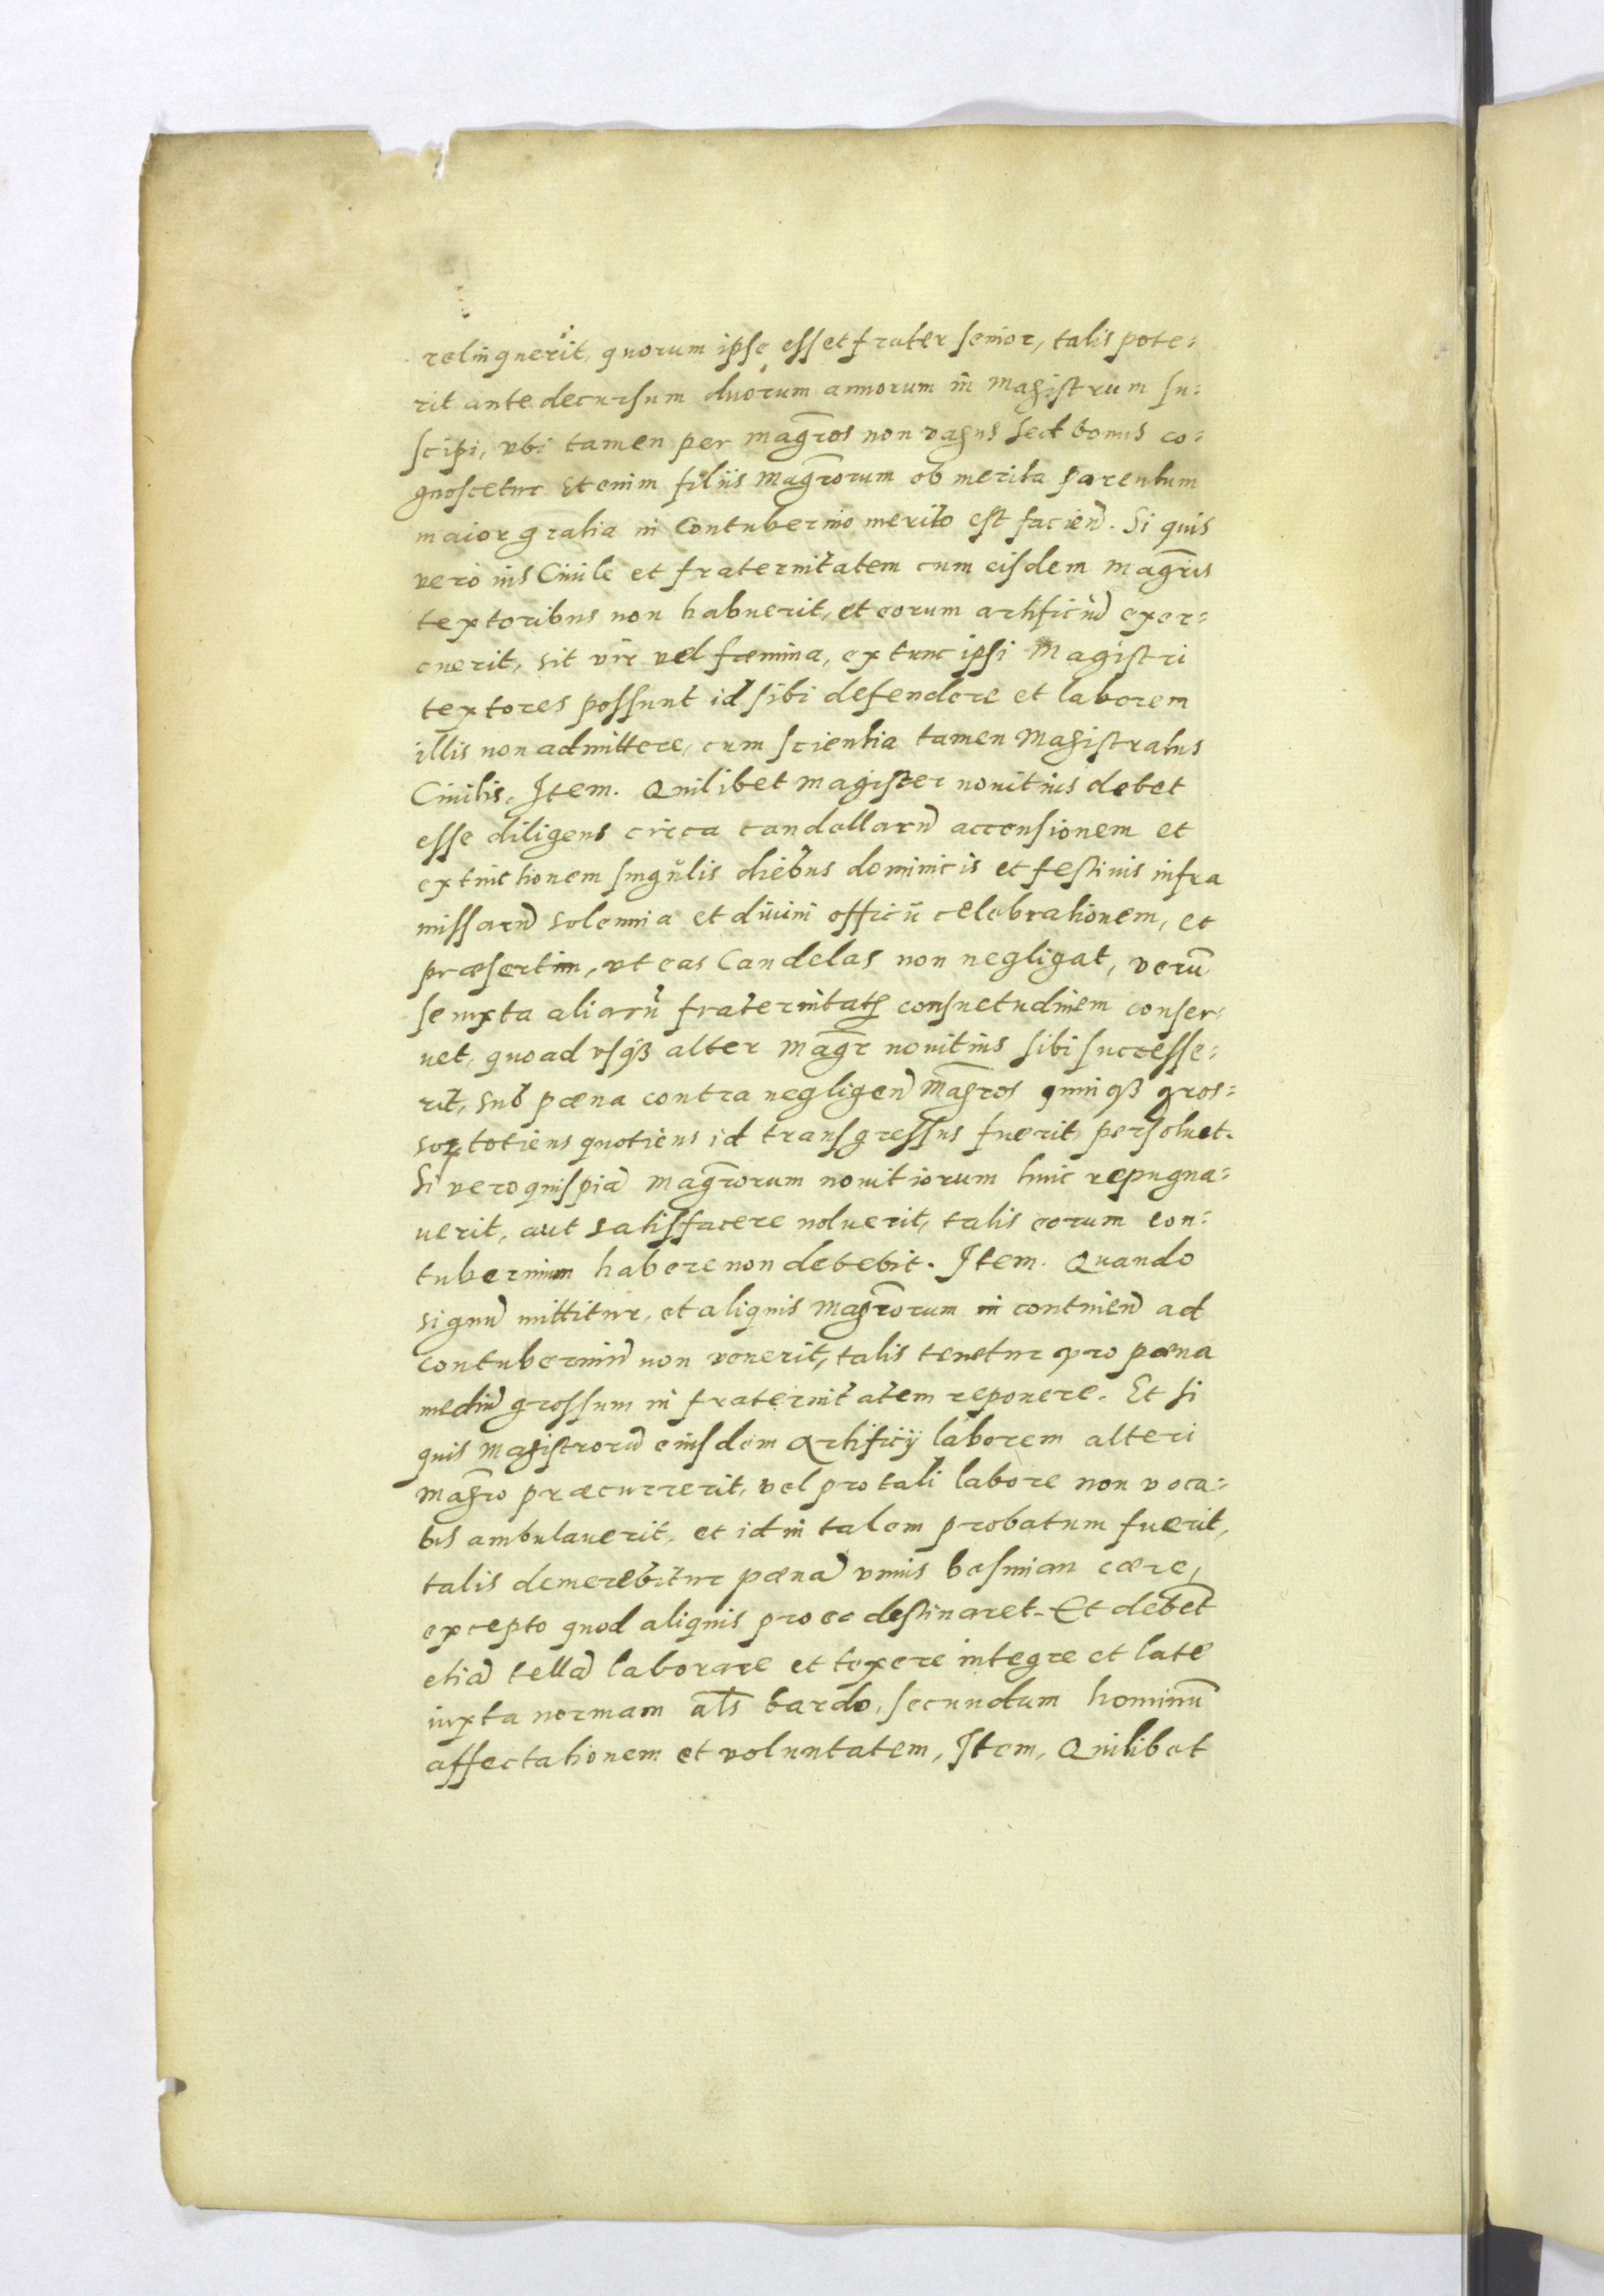 relinquerit, quorum ipse esset frater senior, talis pote:
rit ante decursum duorum annorum in Magistrum su:
scipi, vbi tamen per magr̄os non vagus sed bonus co:
gnoscetur. Etenim filiis Magr̄orum ob merita parentum
maior gratia in Contubernio merito est faciend̄. Si quis
vero ius Ciuile et fraternitatem cum eisdem magr̄is
textoribus non habuerit, et eorum artificiū exer:
cuerit, sit vir vel fœmina, extunc ipsi Magistri
textores possunt id sibi defendere et laborem
illis non admittere, cum scientia tamen Magistratus
Ciuilis. Item. Quilibet magister nouitius debet
esse diligens circa candellarū accensionem et
extinctionem singulis diebus dominicis et festiuis infra
missarū solemnia et diuini officii celebrationem, et
præsertim, vt eas Candelas non negligat, verū
se iuxta aliarū fraternitatꝭ consuetudinem conser:
uet, quoad vsqꝫ alter magr̄ nouitius sibi successe:
rit, sub pœna contra negligen̄ magr̄os quinqꝫ gros:
soꝝ totiens quotiens id transgressus fuerit persoluet.
Si vero quispiā magr̄orum nouitiorum huic repugna:
uerit, aut satisfacere noluerit, talis eorum con:
tubernium habere non debebit. Item. Quando
signū mittitur, et aliquis magr̄orum in continen̄ ad
contuberniū non venerit, talis tenetur pro pœna
mediū grossum in fraternitatem reponere. Et si
quis Magistrorū eiusdem Artificij laborem alteri
magr̄o præcurrerit, vel pro tali labore non voca:
tus ambulauerit, et id in talem probatum fuerit,
talis demerebitur pœnā vnius besmian cæræ,
excepto quod aliquis pro eo destinaret. Et debet
etiā tellā laborare et texere integre et late
iuxta normam al̄s bardo, secundum hominū
affectationem et voluntatem, Item, Quilibet